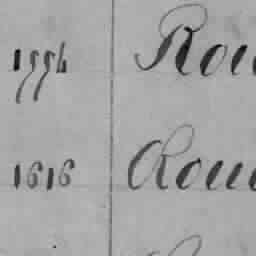 1994 Rou
1616 Rou